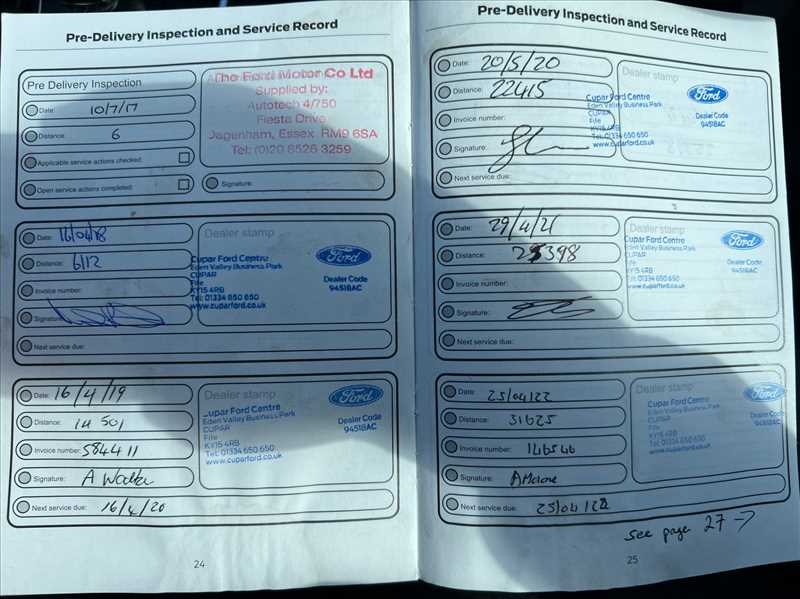 Pre-Delivery Inspection and Service Record
Pre Delivery Inspection
Date: 10/7/17
Distance: 6
Applicable service actions checked:
Open service actions completed:
The Ford Motor Co Ltd
Supplied by:
Autotech 4/750
Fiesta Drive
Dagenham, Essex RM9 6SA
Tel: (0)20 8526 3259
Signature:
Date: 16/04/18
Distance: 6112
Invoice number:
Signature:
Next service due:
Dealer stamp
Cupar Ford Centre
Eden Valley Business Park
CUPAR
Fife
KY15 4RB
Tel: 01334 650 650
www.cuparford.co.uk
Ford
Dealer Code
94518AC
Date: 16/4/19
Distance: 14 501
Invoice number: 584411
Signature: A Walker
Next service due: 16/4/20
Dealer stamp
Cupar Ford Centre
Eden Valley Business Park
CUPAR
Fife
KY15 4RB
Tel: 01334 650 650
www.cuparford.co.uk
Ford
Dealer Code
94518AC
24
Pre-Delivery Inspection and Service Record
Date: 20/5/20
Distance: 22415
Invoice number:
Signature:
Next service due:
Dealer stamp
Cupar Ford Centre
Eden Valley Business Park
CUPAR
Fife
KY15 4RB
Tel: 01334 650 650
www.cuparford.co.uk
Ford
Dealer Code
94518AC
Date: 29/4/21
Distance: 25398
Invoice number:
Signature:
Next service due:
Dealer stamp
Cupar Ford Centre
Eden Valley Business Park
CUPAR
Fife
KY15 4RB
Tel: 01334 650 650
www.cuparford.co.uk
Ford
Dealer Code
94518AC
Date: 25/04/22
Distance: 31625
Invoice number: 146546
Signature: A Malone
Next service due: 25/04/22
Dealer stamp
Cupar Ford Centre
Eden Valley Business Park
CUPAR
Fife
KY15 4RB
Tel: 01334 650 650
www.cuparford.co.uk
Ford
Dealer Code
94518AC
see page 27 →
25